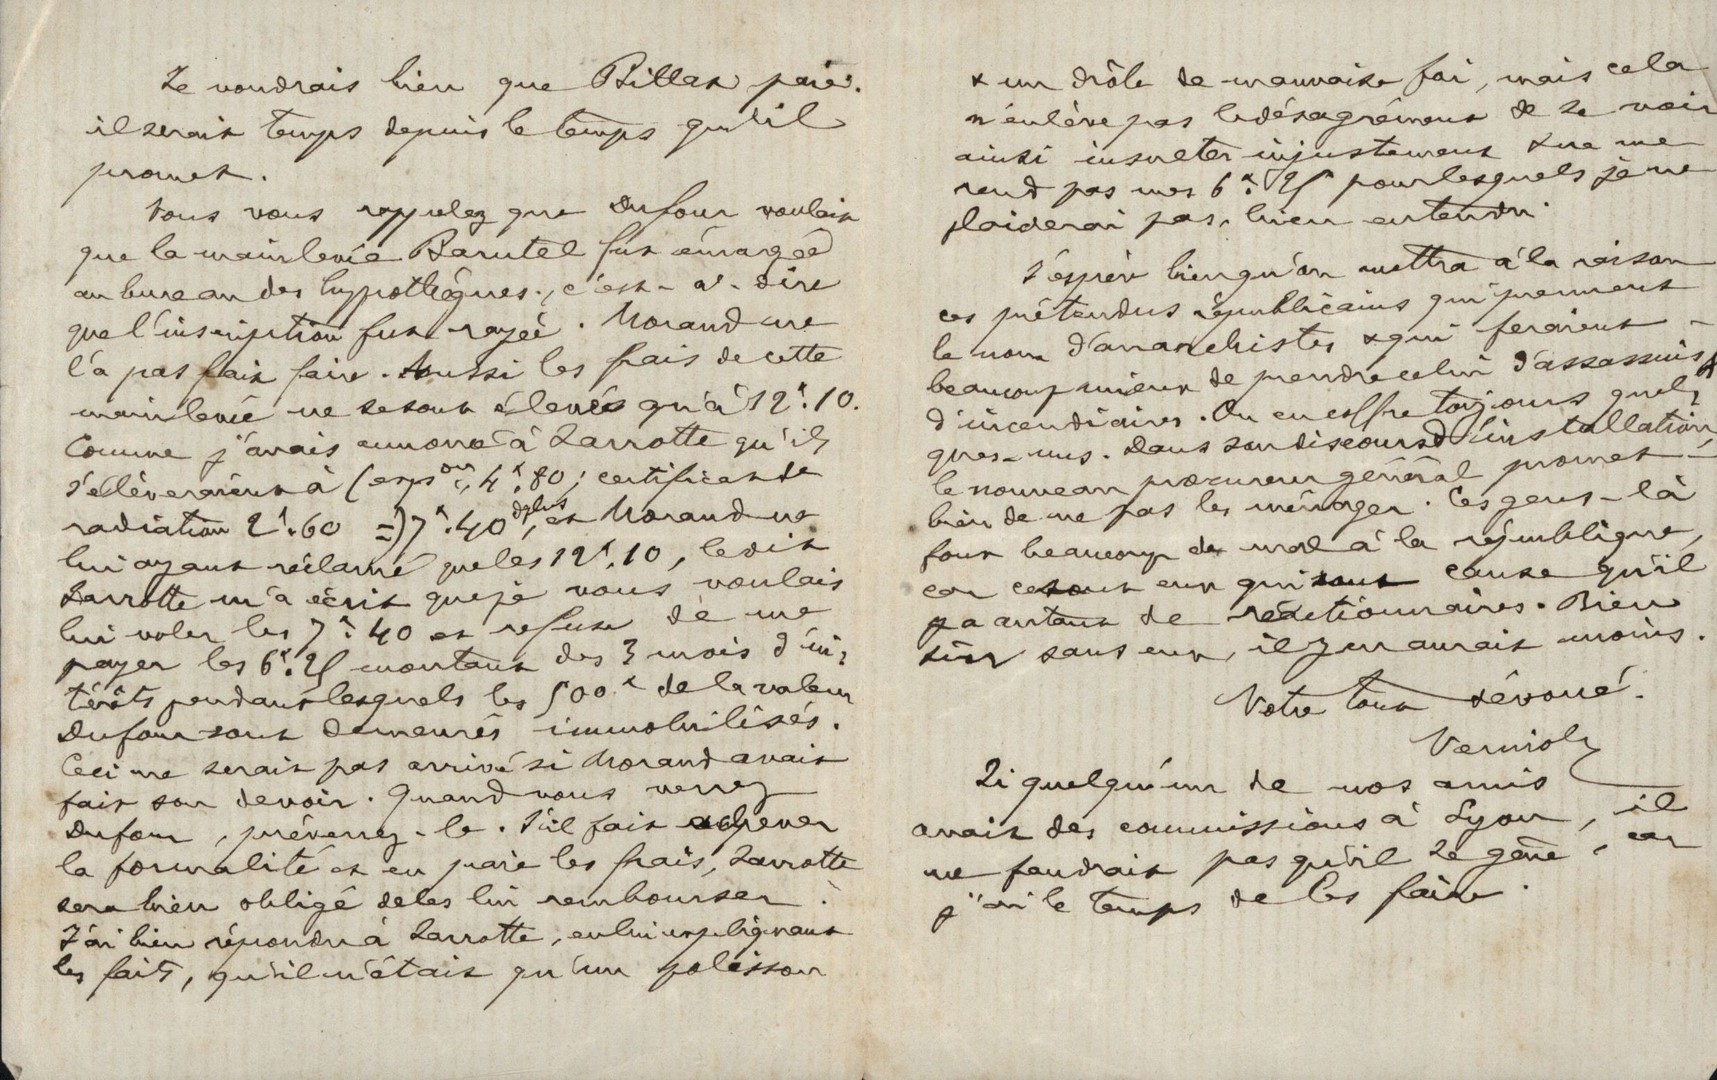 Je voudrais bien que Billas paie.
il serait temps depuis le temps qu'il
promet.
Vous vous rappelez que Dufour voulait
que la mainlevée Barutel fut émargée
au bureau des hypothèques, c'est-à-dire
que l'inscription fut rayée. Morand ne
l'a pas fait faire. Aussi les frais de cette
mainlevée ne se sont élevés qu'à 12f.10.
Comme j'avais annoncé à Larrotte qu'ils
s'élèveraient à (exp.on, 4f.80; certificat de
radiation 2f.60 =) 7f.40 de plus, et Morand ne
lui ayant réclamé que les 12f.10, le dit
Larrotte m'a écrit que je vous voulais
lui voler les 7f.40 et refuse de me
payer les 6f.25 montant des 3 mois d'in-
térêts pendant lesquels les 500f de la valeur
Dufour sont demeurés immobilisés.
Ceci ne serait pas arrivé si Morand avait
fait son devoir. Quand vous verrez
Dufour, prévenez-le. S'il fait achever
la formalité et en paie les frais, Larrotte
sera bien obligé de les lui rembourser.
J'ai bien répondu à Larrotte, en lui expliquant
les faits, qu'il n'était qu'un polisson
& un drôle de mauvaise foi, mais cela
n'enlève pas le désagrément de se voir
ainsi insulter injustement & ne me
rend pas mes 6f.25 pour lesquels je ne
plaiderai pas, bien entendu.
J'espère bien qu'on mettra à la raison
ces prétendus républicains qui prennent
le nom d'anarchistes & qui feraient
beaucoup mieux de prendre celui d'assassins &
d'incendiaires. On en coffre toujours quel-
ques-uns. Dans son discours d'installation,
le nouveau procureur général promet
bien de ne pas les ménager. Ces gens-là
font beaucoup de mal à la république,
car ce sont eux qui sont cause qu'il
y a autant de réactionnaires. Bien
sûr sans eux, il y en aurait moins.
Votre tout dévoué.
Verniol
Si quelqu'un de nos amis
avait des commissions à Lyon, il
ne faudrait pas qu'il se gêne, car
j'ai le temps de les faire.